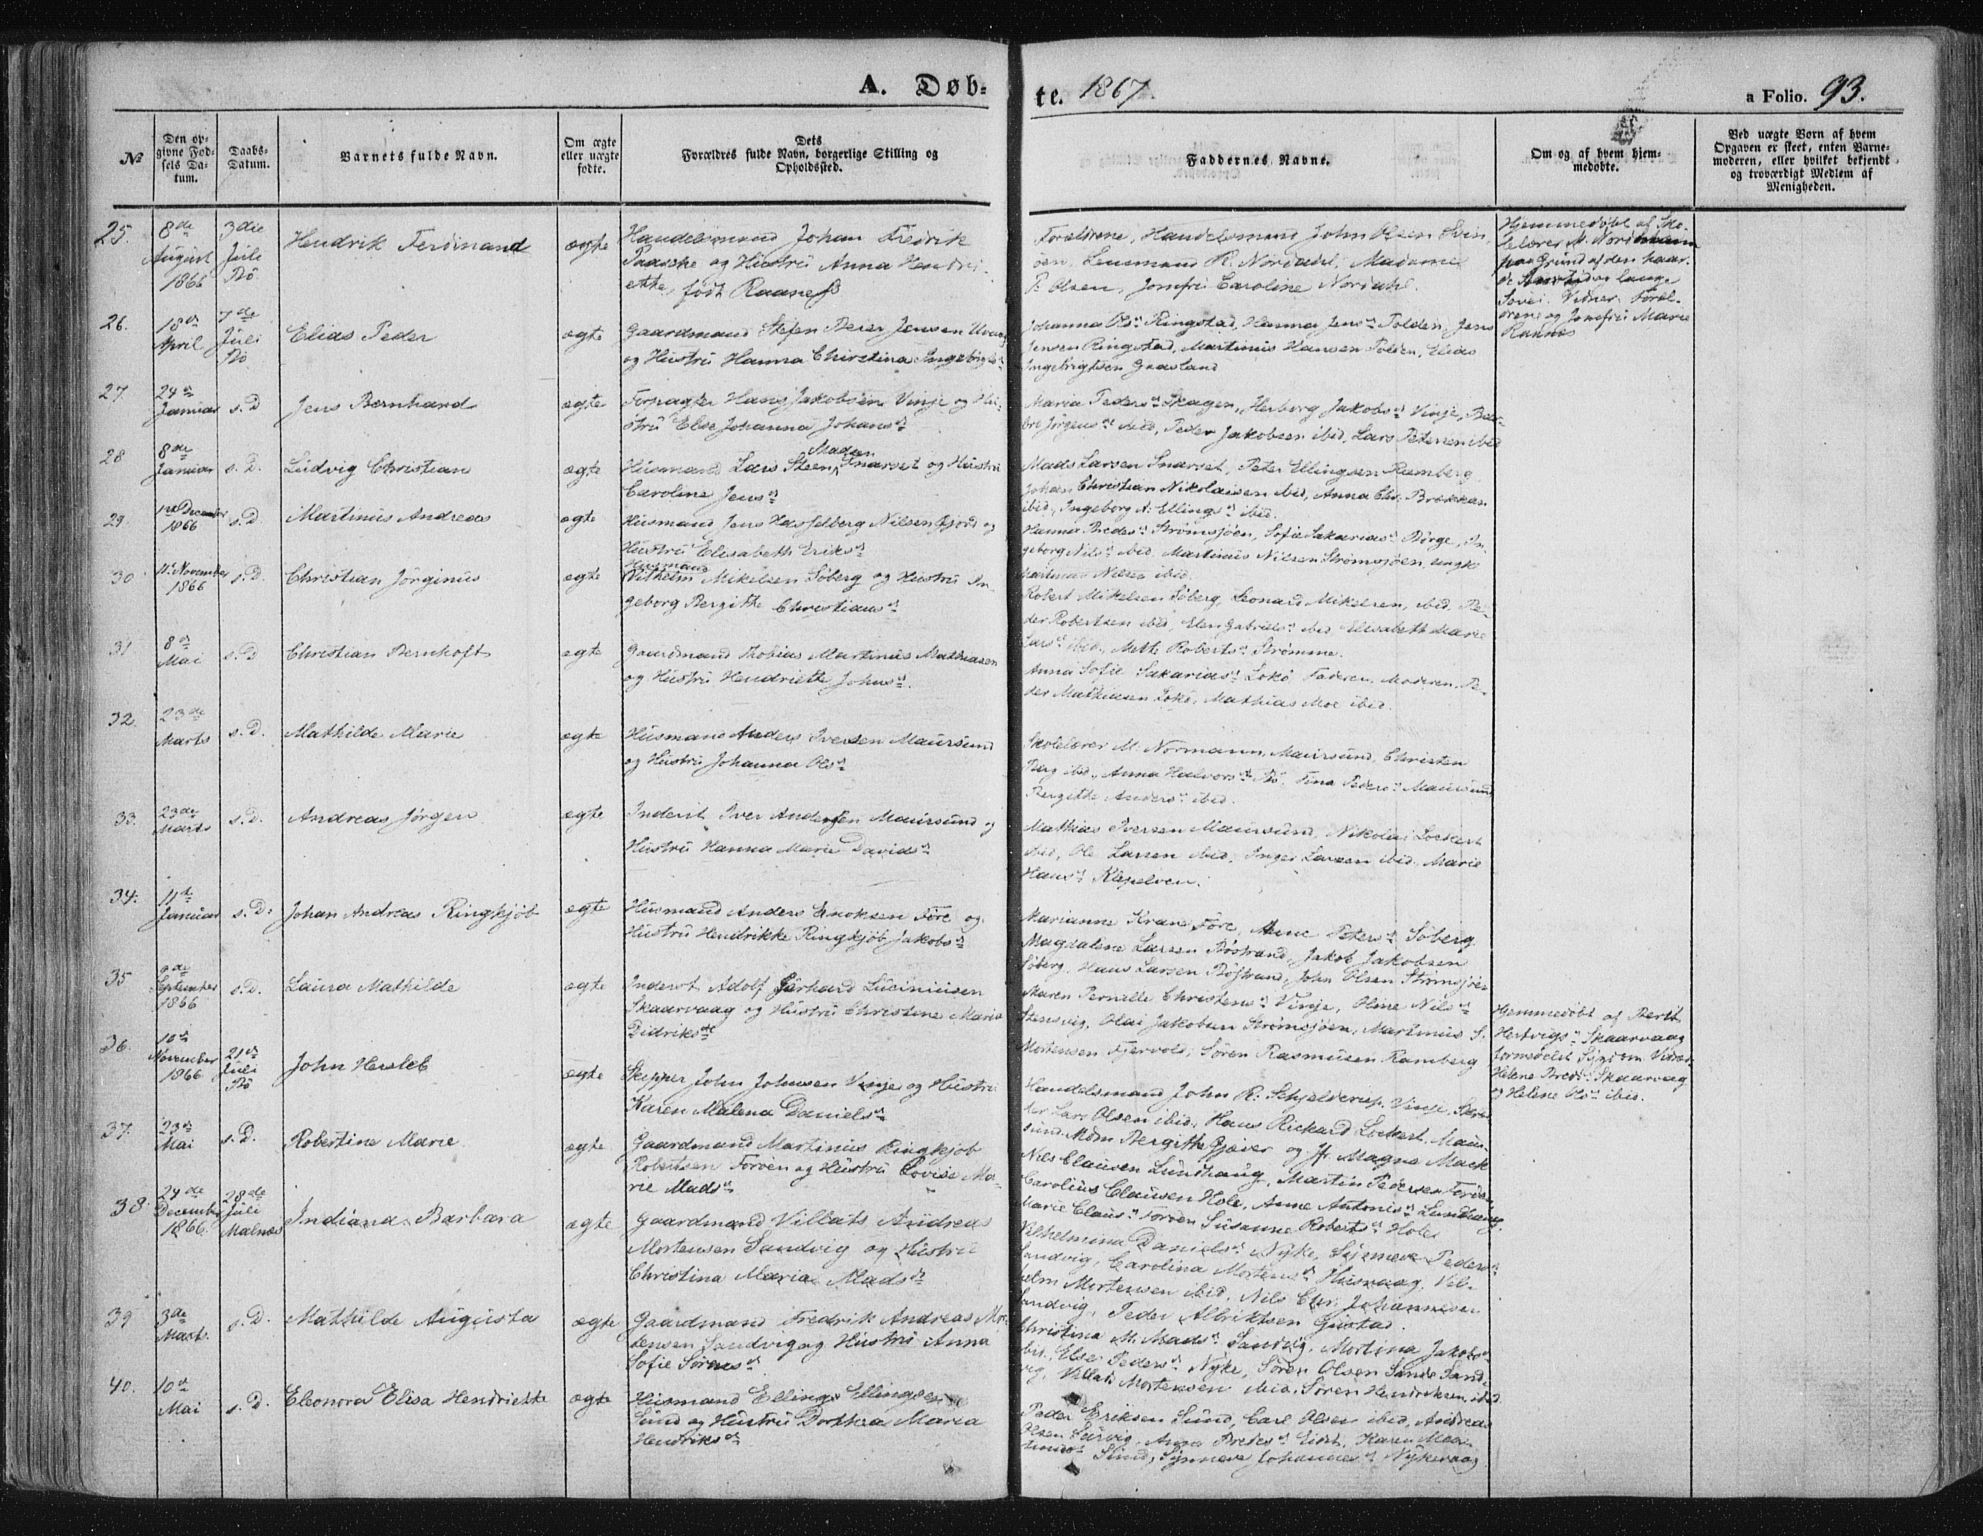 A. Døb-
te. 1867.
a Folio. 93.
No
Den op-
givne Fød-
sels Da-
tum.
Daabs-
Datum.
Barnets fulde Navn.
Om ægte
eller uægte
fødte.
Dets
Forældres fulde Navn, borgerlige Stilling og
Opholdssted.
Faddernes Navne.
Om og af hvem hjem-
medøbte.
Ved uægte Børn af hvem
Opgaven er skeet, enten Barne-
moderen, eller hvilket bekjendt
og troværdigt Medlem af
Menigheden.
25.
8de
August
1866
3die
Juli
Bø
Hendrik Ferdinand
ægte
Handelsmand Johan Fredrik
Paaske og Hustru Anna Hendri-
ette, født Raanes
Forældrene, Handelsmand John Olsen
Lensmand R. Nordahl, Madame
P. Olsen, Jomfru Caroline Nordahl.
Hjemmedøbt af Sko-
lelærer M. Normann
paa Grund af den haar-
de og lange
Sovei. Vidner: Foræl-
drene og Jomfru Marie
26.
18de
April
7de
Juli
Bø
Elias Peder
ægte
Gaardmand Stefen Beier Jensen
og Hustru Hanna Christina Ingebrigtsd
Johanna Olsd Ringstad, Hanna Jensd Tolden, Jens
Jensen Ringstad, Martinus Hansen Tolden, Elias
Ingebrigtsen Gaasland
27.
24de
Januar
s. D
Jens Bernhard
ægte
Forpagter Hans Jakobsen Vinje og Hu-
stru Else Johanna Johansd
Maria Pedersd Skagen, Herborg Jakobsd Vinje,
Jørgensd ibid, Peder Jakobsen ibid, Lars Petersen ibid
28
8de
Januar
s. D.
Ludvig Christian
ægte
Husmand Lars Steen Madsen Snarset og Hustru
Caroline Jensd
Mads Larsen Snarset, Peter Ellingsen Ramberg
Johan Christian Nikolaisen ibid, Anna Chr. Brekkan
ibid, Ingeborg A. Ellingsd ibid.
29.
December
1866
s. D.
Martinus Andreas
ægte
Husmand Jens Hasfelberg Nilsen og
Hustru Elisabeth Eriksd
Hanna Bredesd Strømsjøen, Sofie Sakariasd Børge, In-
geborg Nilsd ibid, Martinus Nilsen Strømsjøen, ungk
Nilsen ibid.
30
11te November
1866
s. D.
Christian Jørginus
ægte
Husmand
Vilhelm Mikelsen Søberg og Hustru In-
geborg Bergithe Christiansd
Robert Mikelsen Søberg, Leonard Mikelsen, ibid. Pe-
der Robertsen ibid, Elen Gabrielsd ibid Elisabeth Marie
Larsd ibid, Mette Robertsd Strømme.
31
8de
Mai
s. D
Christian Bernhoft
ægte
Gaardmand Tobias Martinus Mathiasen
og Hustru Hendriette Johnsd.
Anna Sofie Sakariasd Lokø Faderen, Moderen, Pe-
der Mathiasen Lokø, Mathias Moe ibid.
32.
23de
Marts
s. D.
Mathilde Marie
ægte
Husmand Anders Iversen Maursund
og Hustru Johanna Olsd
Skolelærer M. Normann, Maursund, Christen
Berg ibid, Anna Halvorsd Bø, Tina Pedersd Maursund
Bergitte Andersd ibid.
33.
23de
Marts
s. D.
Andreas Jørgen
ægte
Inderst Iver Andersen Maursund og
Hustru Hanna Marie Davidsd
Mathias Iversen Maursund, Nikolai Lockert
ibid, Ole Larsen ibid, Inger Larsen ibid, Marie
Hansd Klepelven.
34.
11te
Januar
s. D.
Johan Andreas Ringkjøb
ægte
Husmand Anders Enoksen Føre og
Hustru Hendrikke Ringkjøb Jakobsd
Marianne Krane Føre, Anne Petersd Søberg
Magdalene Larsen Bøstrand, Jakob Jakobsen
Søberg, Hans Larsen Bøstrand, John Olsen Strømsjøen
35
September
1866
s. D.
Laura Mathilde
ægte
Inderst Adolf Gerhard Luciniusen
Skaarvaag og Hustru Christine Marie
Didriksd
Maren Pernille Christensd Vinje, Oline Nilsd
Stensvig, Olai Jakobsen Strømsjøen, Martinus S.
Mortensen Fjervold, Søren Rasmusen Ramberg
Hjemmedøbt af Berit
Hertvigsd Skaarvaag
formedelst Sygdom Vidner
Helene Bredsd Skaarvaag
og Helene Olsd ibid.
36.
10de
November
1866
21de
Juli
Bø
John Hersleb
ægte
Skipper John Johnsen Vinje og Hustru
Karen Malena Danielsd
Handelsmand John R. Schjelderup, Vinje,
Lars Olsen ibid, Hans Rickard Lockert, Maur-
sund, Mdm Bergitte Gjæver og Jfr Magna Mack
37.
23de
Mai
s. D.
Robertine Marie
ægte
Gaardmand Martinus Ringkjøb
Robertsen Forøen og Hustru Lovise Ma-
rie Madsd
Nils Clausen Lundhaug, Martin Pedersen Forøen
Carolius Clausen Hole, Anne Antonisd Lundhaug,
Marie Clausd Forøen Susanne Robertsd Hole
38.
24de
December
1866.
28de
Juli
Malnes
Indiana Barbara
ægte
Gaardmand Villats Andreas
Mortensen Sandvig og Hustru
Christina Maria Madsd
Vilhelmina Danielsd Nyke, Synneve Pedersd
Sandvig, Carolina Mortensd Husvaag, Vil-
helm Mortensen ibid, Nils Chr. Johannesen
Sandvig, Peder Albriktsen Gustad.
39
3de
Marts.
s. D.
Mathilde Augusta
ægte
Gaardmand Fredrik Andreas Mor-
tensen Sandvig og Hustru Anna
Sofie Sørensd
Christina M. Madsd Sandvig, Martina Jakobsd
ibid, Else Pedersd Nyke, Søren Olsen Sande Sand-
vig, Villats Mortensen ibid, Søren Hendriksen ibid
40.
10de
Mai
s. D.
Eleonora Elisa Hendriette
ægte
Husmand Elling Ellingsen
Sund og Hustru Dorthea Maria
Hendriksd
Peder Eriksen Sund, Carl Olsen ibid, Andreas
Olsen Sørvig, Anna Bredesd Eidet, Karen
Sund, Synneve Johannesd Nykvaag